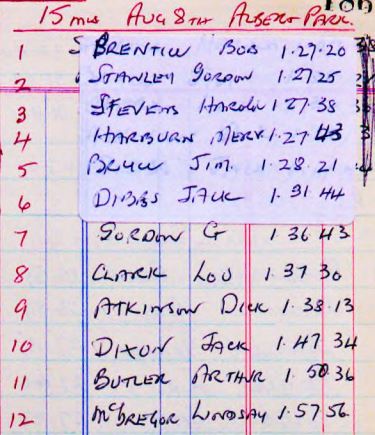 15 MLS AUG 8TH ALBERT PARK.
1 BRENTIN BOB 1.27.20
2 STANLEY GORDON 1.27 25
3 STEVENS HAROLD 1 27.38
4 HARBURN MERV 1.27 43
5 JIM. 1.28.21
6 DIBBS JACK 1. 31.44
7 GORDON G 1 36 43
8 CLARK LOU 1.37 30
9 ATKINSON DICK 1.38.13
10 DIXON JACK 1.47 34
11 BUTLER ARTHUR 1.50 36
12 McGREGOR LINDSAY 1.57 56